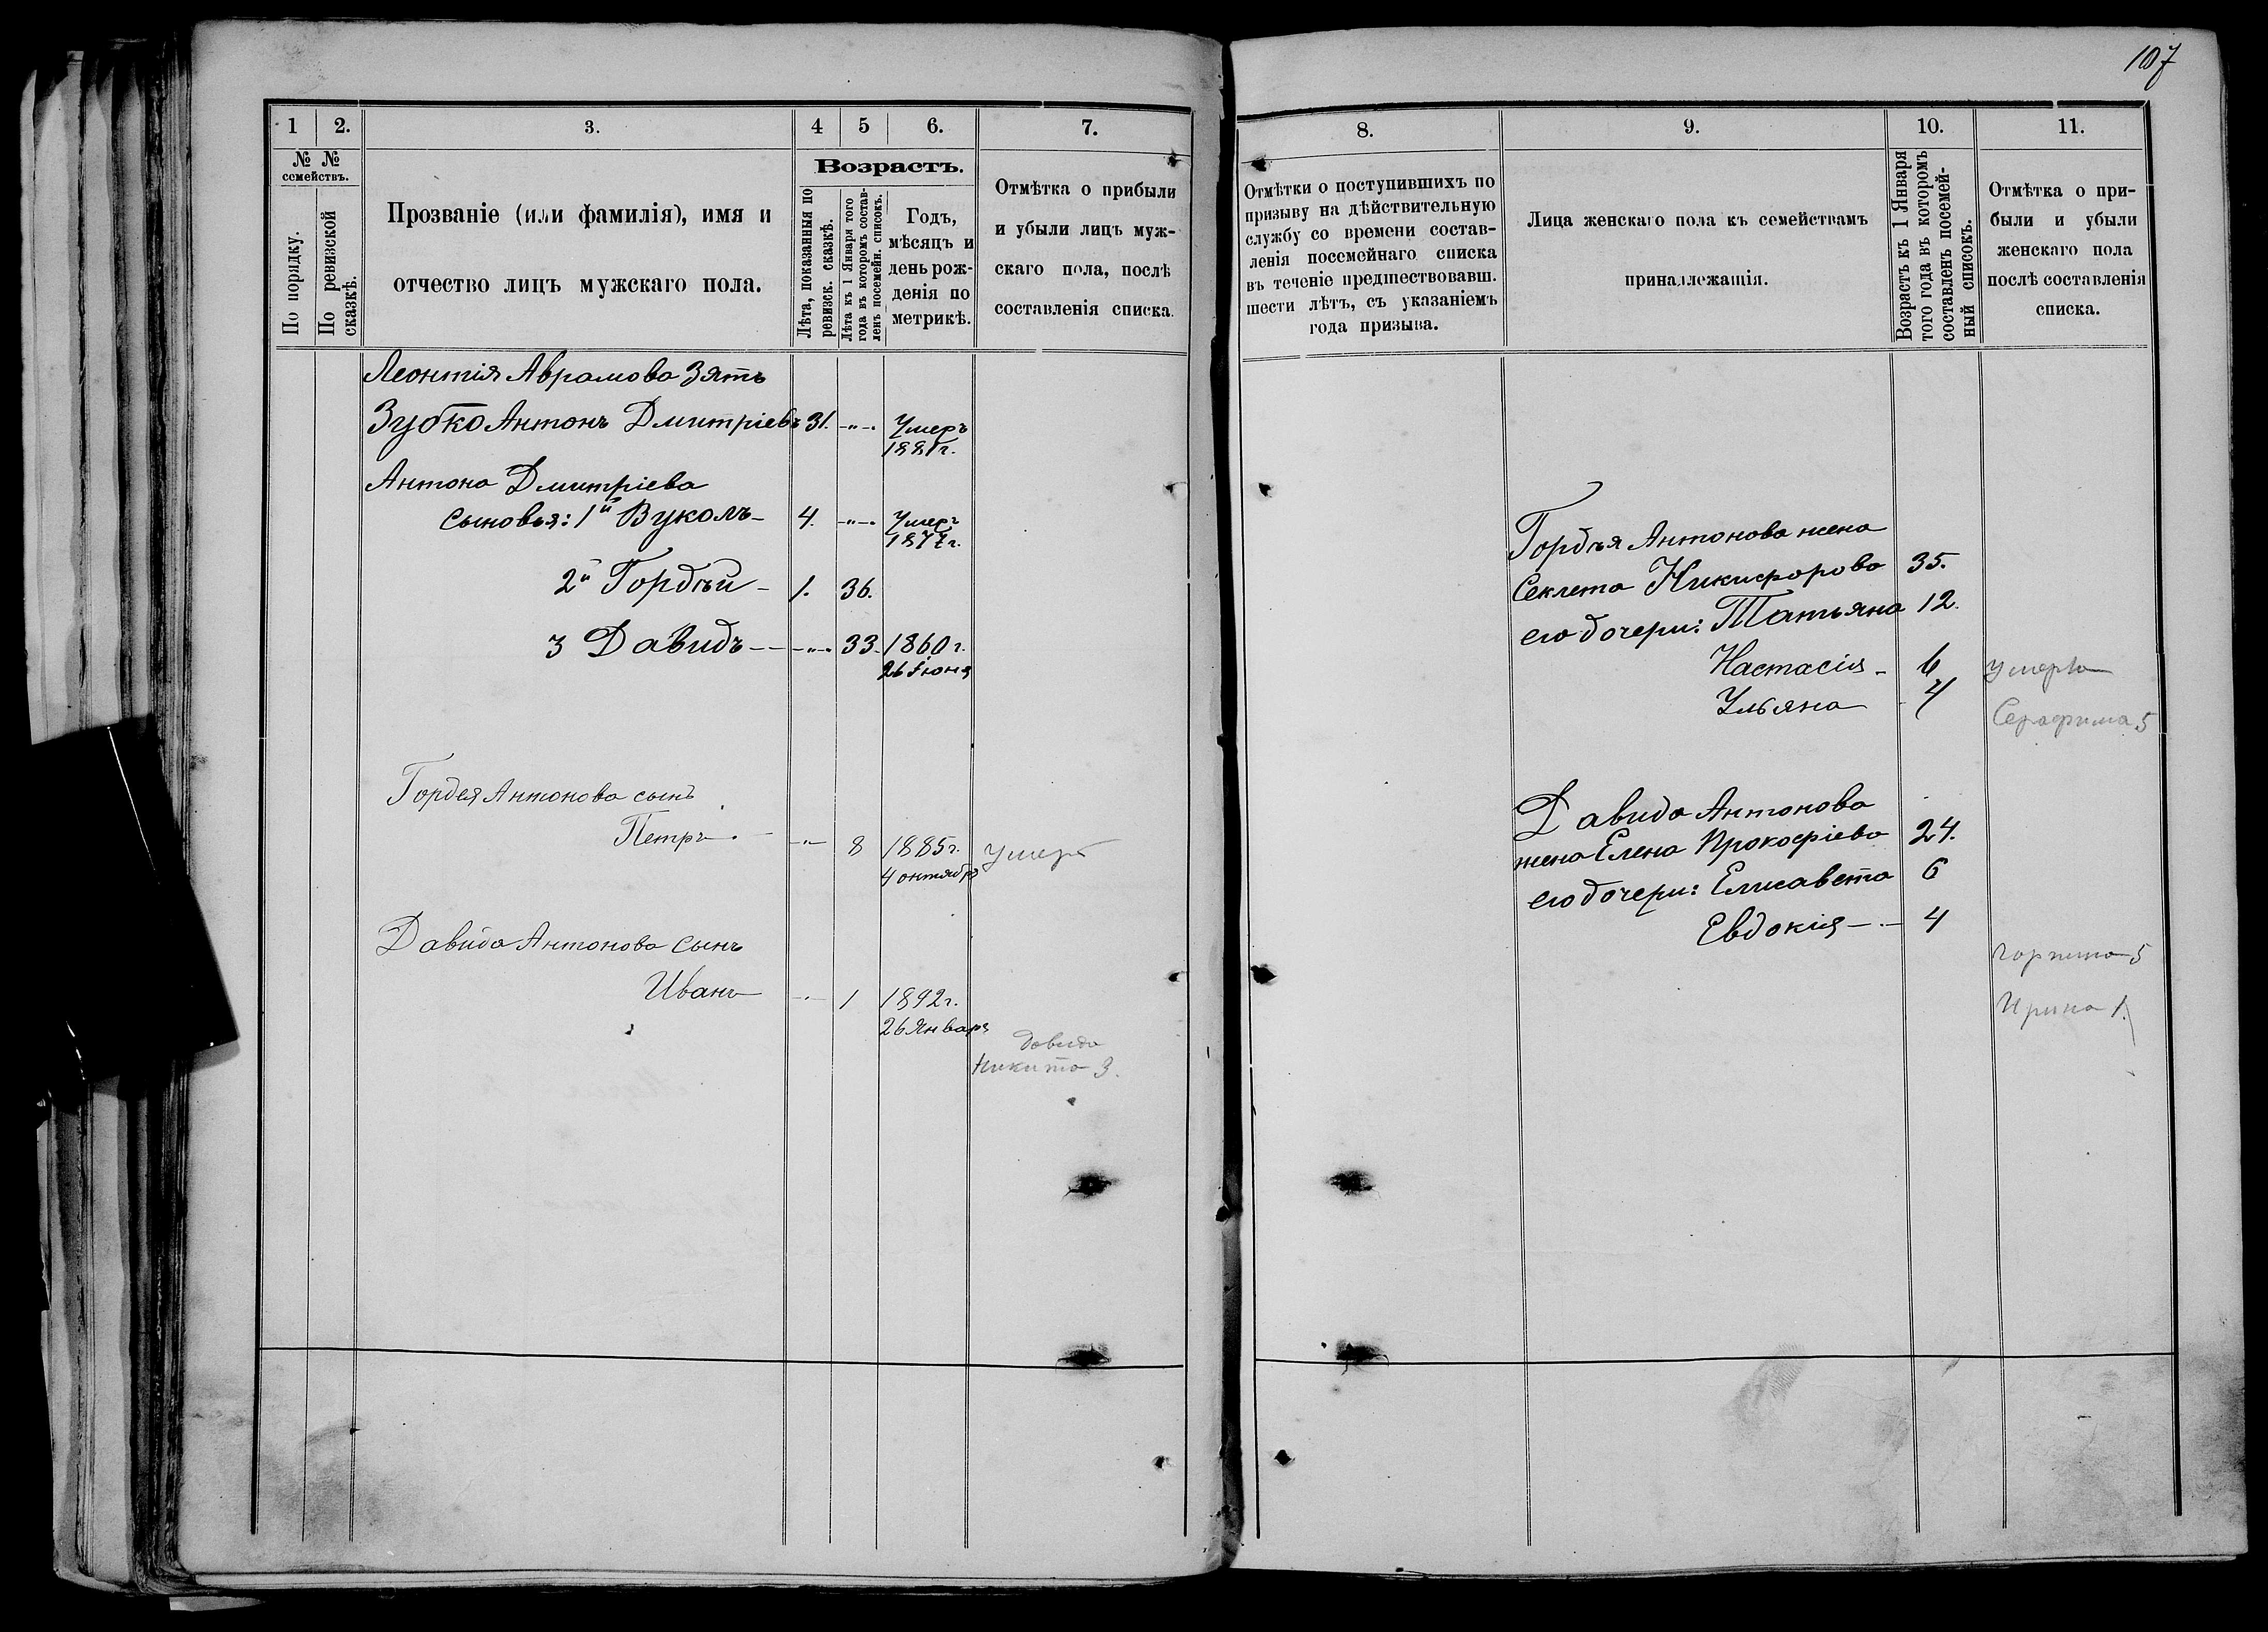 107
1
2.
3.
4
5
6.
7.
№ №
семействъ.
По порядку.
По ревизской
сказкѣ.
Прозваніе (или фамилія), имя и
отчество лицъ мужскаго пола.
Возрастъ.
Лѣта, показанныя по
ревизск. сказкѣ.
Лѣта къ 1 Января того
года въ которомъ состав-
ленъ посемейн. списокъ.
Годъ,
мѣсяцъ и
день рож-
денія по
метрикѣ.
Отмѣтка о прибыли
и убыли лицъ муж-
скаго пола, послѣ
составленія списка.
Леонтія Аврамова Зять
Зубко Антонъ Дмитріевъ 31. -"-. Умеръ
1881г.
Антона Дмитріева
сыновья: 1й Вуколъ- 4. -"-. Умеръ
1877г.
2й Гордѣй - 1. 36.
3 Давидъ -- -"-. 33. 1860г.
26 Іюня
Гордея Антонова сынъ
Петръ. - -"- 8 1885г. умеръ
4 октября
Давида Антонова сынъ
Иванъ -"- 1 1892г.
26 Января
Давида
Никита 3.
8.
9.
10.
11.
Отмѣтки о поступившихъ по
призыву на дѣйствительную
службу со времени состав-
ленія посемейнаго списка
въ теченіе предшествовавш.
шести лѣтъ, съ указаніемъ
года призыва.
Лица женскаго пола къ семействамъ
принадлежащія.
Возрастъ къ 1 Января
того года въ которомъ
составленъ посемей-
ный списокъ.
Отмѣтка о при-
были и убыли
женскаго пола
послѣ составленія
списка.
Гордѣя Антонова жена
Секлета Никифорова 35.
его дочери: Татьяна 12.
Настасія - 6 умерла
Ульяна - 4
Серафима 5
Давида Антонова
жена Елена Прокофіева 24.
его дочери: Елисавета 6
Евдокія - . - 4
горпина 5
Ирина 1.